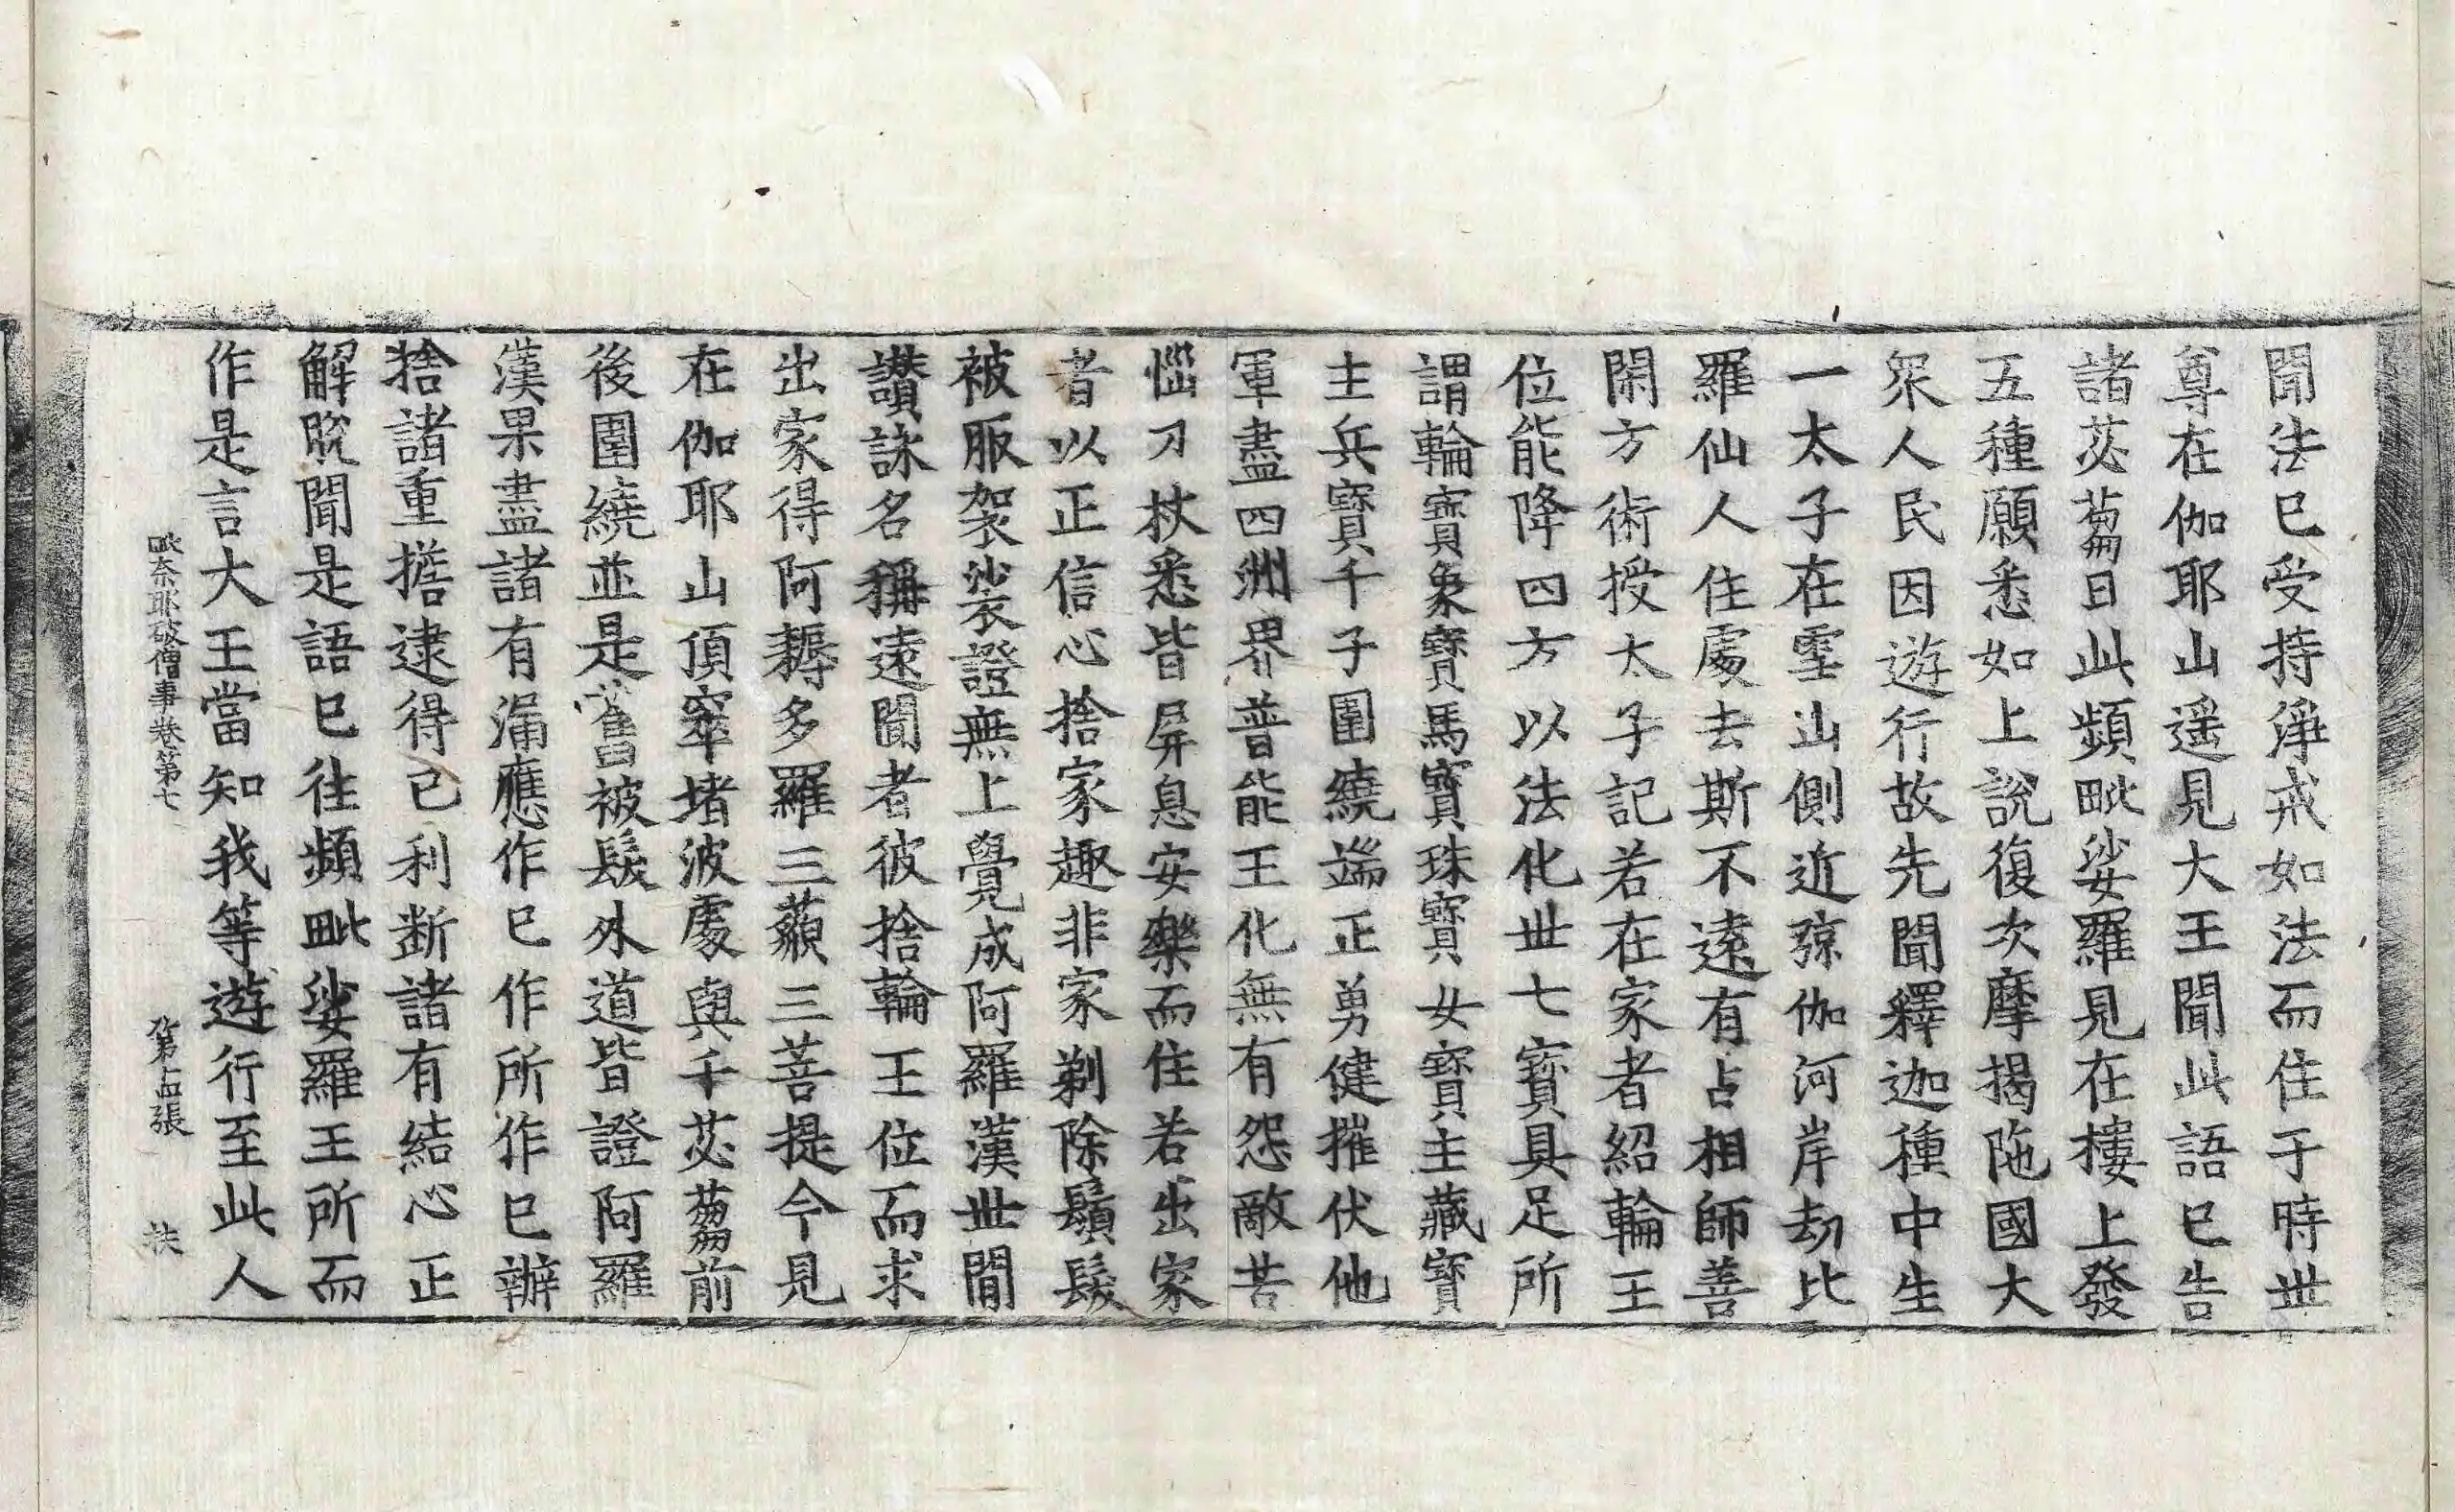 聞法已受持淨戒如法而住于時世
尊在伽耶山遥見大王聞此語已告
諸苾蒭曰此頻毗娑羅見在樓上發
五種願悉如上說復次摩揭陁國大
衆人民因遊行故先聞釋迦種中生
一太子在雪山側近弶伽河岸劫比
羅仙人住處去斯不遠有占相師善
閑方術授太子記若在家者紹輪王
位能降四方以法化世七寶具足所
謂輪寶象寶馬寶珠寶女寶主藏寶
主兵寶千子圍繞端正勇健摧伏他
軍盡四洲界普能王化無有怨敵苦
惱刀杖悉皆屏息安樂而住若出家
者以正信心捨家趣非家剃除鬚髮
被服袈裟證無上覺成阿羅漢世間
讃詠名稱遠聞者彼捨輪王位而求
出家得阿耨多羅三藐三菩提今見
在伽耶山頂窣堵波處與千苾蒭前
後圍繞並是舊被髮外道皆證阿羅
漢果盡諸有漏應作已作所作已辦
捨諸重擔逮得已利斷諸有結心正
解脫聞是語已往頻毗娑羅王所而
作是言大王當知我等遊行至此人
毗奈耶破僧事卷第七 第 張 扶